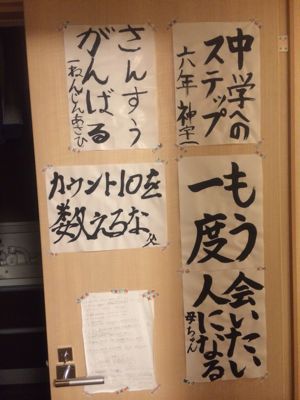 さんすう
がんばる
一ねんじんあさひ
中学への
ステップ
六年 神宇一
カウント10を
数えるな
父
もう
一度
会いたい
人になる
母ちゃん